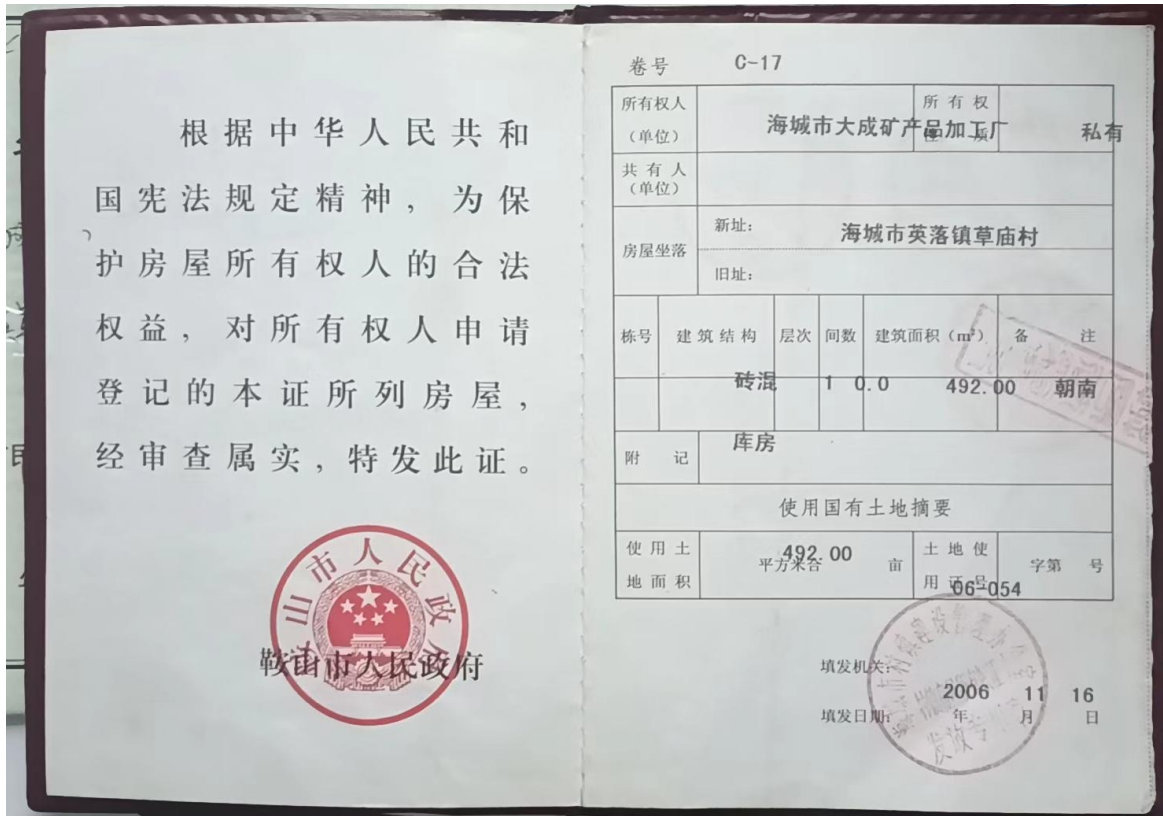 根据中华人民共和
国宪法规定精神，为保
护房屋所有权人的合法
权益，对所有权人申请
登记的本证所列房屋，
经审查属实，特发此证。
山市人民政
鞍山市人民政府
卷号 C-17
所有权人（单位） 海城市大成矿产品加工厂 所有权性质 私有
共有人（单位）
房屋坐落 新址： 海城市英落镇草庙村
旧址：
栋号 建筑结构 层次 间数 建筑面积（m²） 备注
砖混 1 0.0 492.00 朝南
附记 库房
使用国有土地摘要
使用土地面积 492.00 平方米合 亩 土地使用证号 字第 号
06-054
填发机关：
填发日期： 2006 年 11 月 16 日